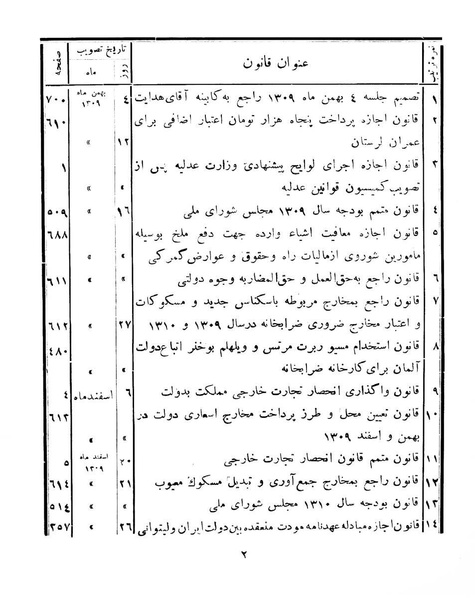 نمره ترتیب | عنوان قانون | تاریخ تصویب | صفحه
روز | ماه
۱ | تصمیم جلسه ۴ بهمن ماه ۱۳۰۹ راجع به کابینه آقای هدایت | ۴ | بهمن ماه ۱۳۰۹ | ۷۰۰
۲ | قانون اجازه پرداخت پنجاه هزار تومان اعتبار اضافی برای | ۶۱۰
عمران لرستان | ۱۲ | »
۳ | قانون اجازه اجرای لوایح پیشنهادی وزارت عدلیه پس از | ۱
تصویب کمیسیون قوانین عدلیه | » | »
۴ | قانون متمم بودجه سال ۱۳۰۹ مجلس شورای ملی | ۱۶ | » | ۵۰۹
۵ | قانون اجازه معافیت اشیاء وارده جهت دفع ملخ بوسیله | ۶۸۸
مامورین شوروی از مالیات راه و حقوق و عوارض گمرکی | » | »
۶ | قانون راجع به حق العمل و حق المضاربه وجوه دولتی | » | » | ۶۱۱
۷ | قانون راجع بمخارج مربوطه باسکناس جدید و مسکوکات
و اعتبار مخارج ضروری ضرابخانه در سال ۱۳۰۹ و ۱۳۱۰ | ۲۷ | » | ۶۱۲
۸ | قانون استخدام مسیو ربرت مرتس و ویلهلم بوخفر اتباع دولت | ۴۸۰
آلمان برای کارخانه ضرابخانه | » | »
۹ | قانون واگذاری انحصار تجارت خارجی مملکت بدولت | ۶ | اسفندماه | ۴
۱۰ | قانون تعیین محل و طرز پرداخت مخارج اسعاری دولت در | ۶۱۳
بهمن و اسفند ۱۳۰۹ | » | »
۱۱ | قانون متمم قانون انحصار تجارت خارجی | ۲۰ | اسفند ماه ۱۳۰۹ | ۵
۱۲ | قانون راجع بمخارج جمع آوری و تبدیل مسکوك معیوب | ۲۱ | » | ۶۱۴
۱۳ | قانون بودجه سال ۱۳۱۰ مجلس شورای ملی | » | » | ۵۱۴
۱۴ | قانون اجازه مبادله عهدنامه مودت منعقده بین دولت ایران و لیتوانی | ۲۶ | » | ۳۵۷
۲